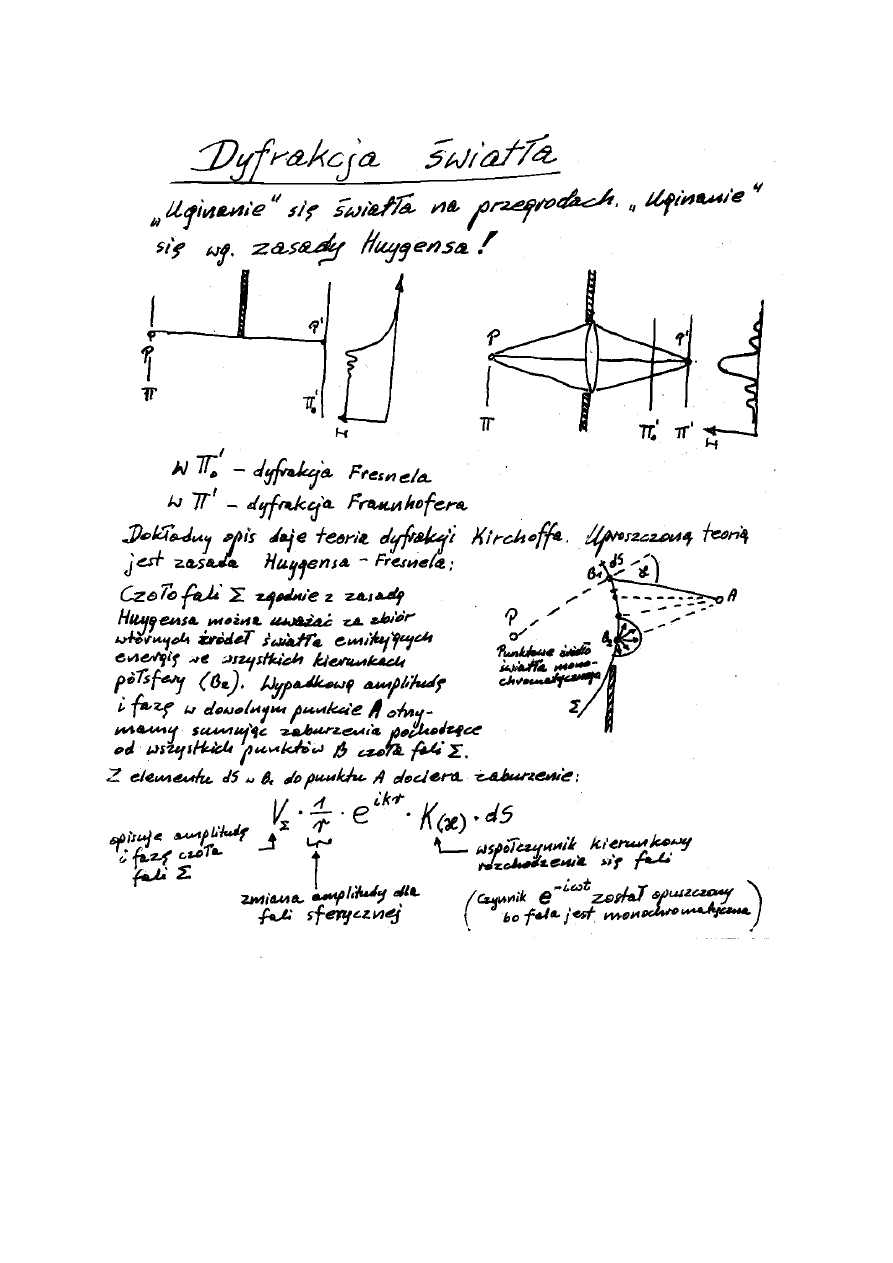 Dyfrakcja światła
„Uginanie" się światła na przegrodach. „Uginanie"
się wg. zasady Huygensa!
P
π
P'
π₀'
I
P
π
P'
π₀' π'
I
w π₀' – dyfrakcja Fresnela
w π' – dyfrakcja Fraunhofera
Dokładny opis daje teoria dyfrakcji Kirchoffa. Uproszczoną teorią
jest zasada Huygensa – Fresnela:
Czoło fali Σ zgodnie z zasadą
Huygensa można uważać za zbiór
wtórnych źródeł światła emitujących
energię we wszystkich kierunkach
półsfery (B₂). Wypadkową amplitudę
i fazę w dowolnym punkcie A otrzy-
mamy sumując zaburzenia pochodzące
od wszystkich punktów B czoła fali Σ.
B₁ dS ϰ
A
P
B₂
Punktowe źródło
światła mono-
chromatycznego
Σ
Z elementu dS w B₁ do punktu A dociera zaburzenie:
V_Σ · 1/r · e^{ikr} · K(ϰ) · dS
opisuje amplitudę
i fazę czoła
fali Σ
zmiana amplitudy dla
fali sferycznej
współczynnik kierunkowy
rozchodzenia się fali
(Czynnik e^{-iωt} został opuszczony
bo fala jest monochromatyczna)